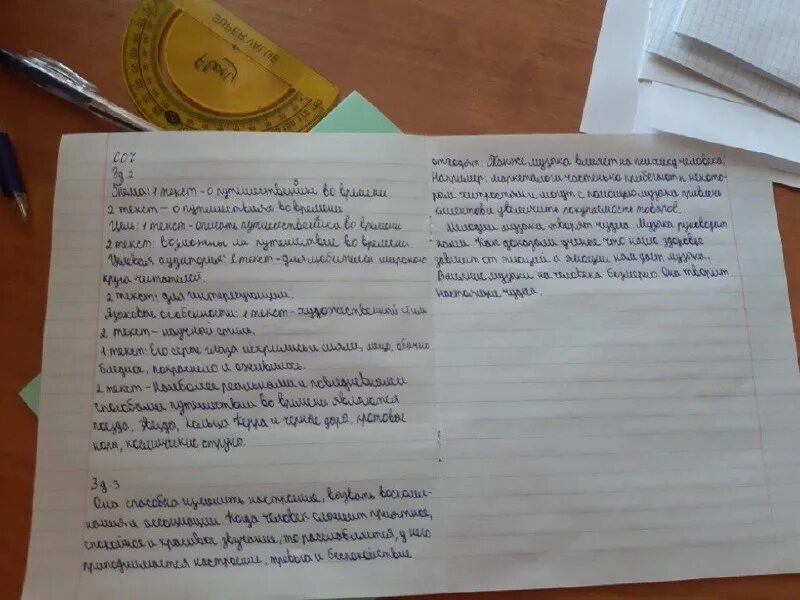 СОЧ
Зд 2
Тема: 1 текст - о путешественнике во времени
2 текст - о путешествиях во времени
Цель: 1 текст - описать путешественника во времени
2 текст: возможны ли путешествие во времени
Целевая аудитория: 1 текст - для любителей широкого
круга читателей.
2 текст: для интересующихся.
Языковые особенности: 1 текст - художественный стиль
2 текст - научный стиль.
1 текст: Его серые глаза искрились и сияли, лицо, обычно
бледное, покраснело и оживилось.
2 текст - Наиболее реальными и повседневными
способами путешествия во времени являются
поезда, звёзды, кольца Керра и чёрные дыры, кротовые
норы, космические струны.
Зд 3
Она способна изменить настроение, вызвать воспоми-
нания и ассоциации. Когда человек слышит приятное,
спокойное и красивое звучание, то расслабляется, у него
приподнимается настроение, тревога и беспокойствие
отходят. Также музыка влияет на психику человека.
Например: маркетологи частенько прибегают к некото-
рым хитростям и могут с помощью музыки
увеличить покупаемость товаров.
Мелодии музыки творят чудеса. Музыка руководит
нами. Как доказали учёные что наше здоровье
зависит от эмоций а эмоции нам дает музыка.
Влияние музыки на человека безмерно. Она творит
настоящие чудеса.
SUPER RAY AU